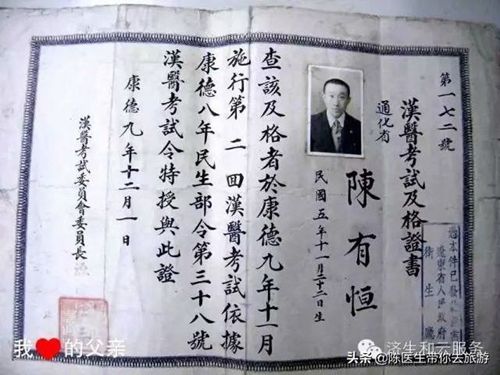 第一七二號
漢醫考試及格證書
通化省
陳有恒
民國五年十一月二十二日生
查該及格者於康德九年十一月
施行第二回漢醫考試依據
康德八年民生部令第三十八號
漢醫考試令特授與此證
康德九年十二月一日
漢醫考試委員會委員長
本件已發
遼東省人民政府
衛生廳
我❤的父亲
济生和云服务
头条@陈医生带你云旅游